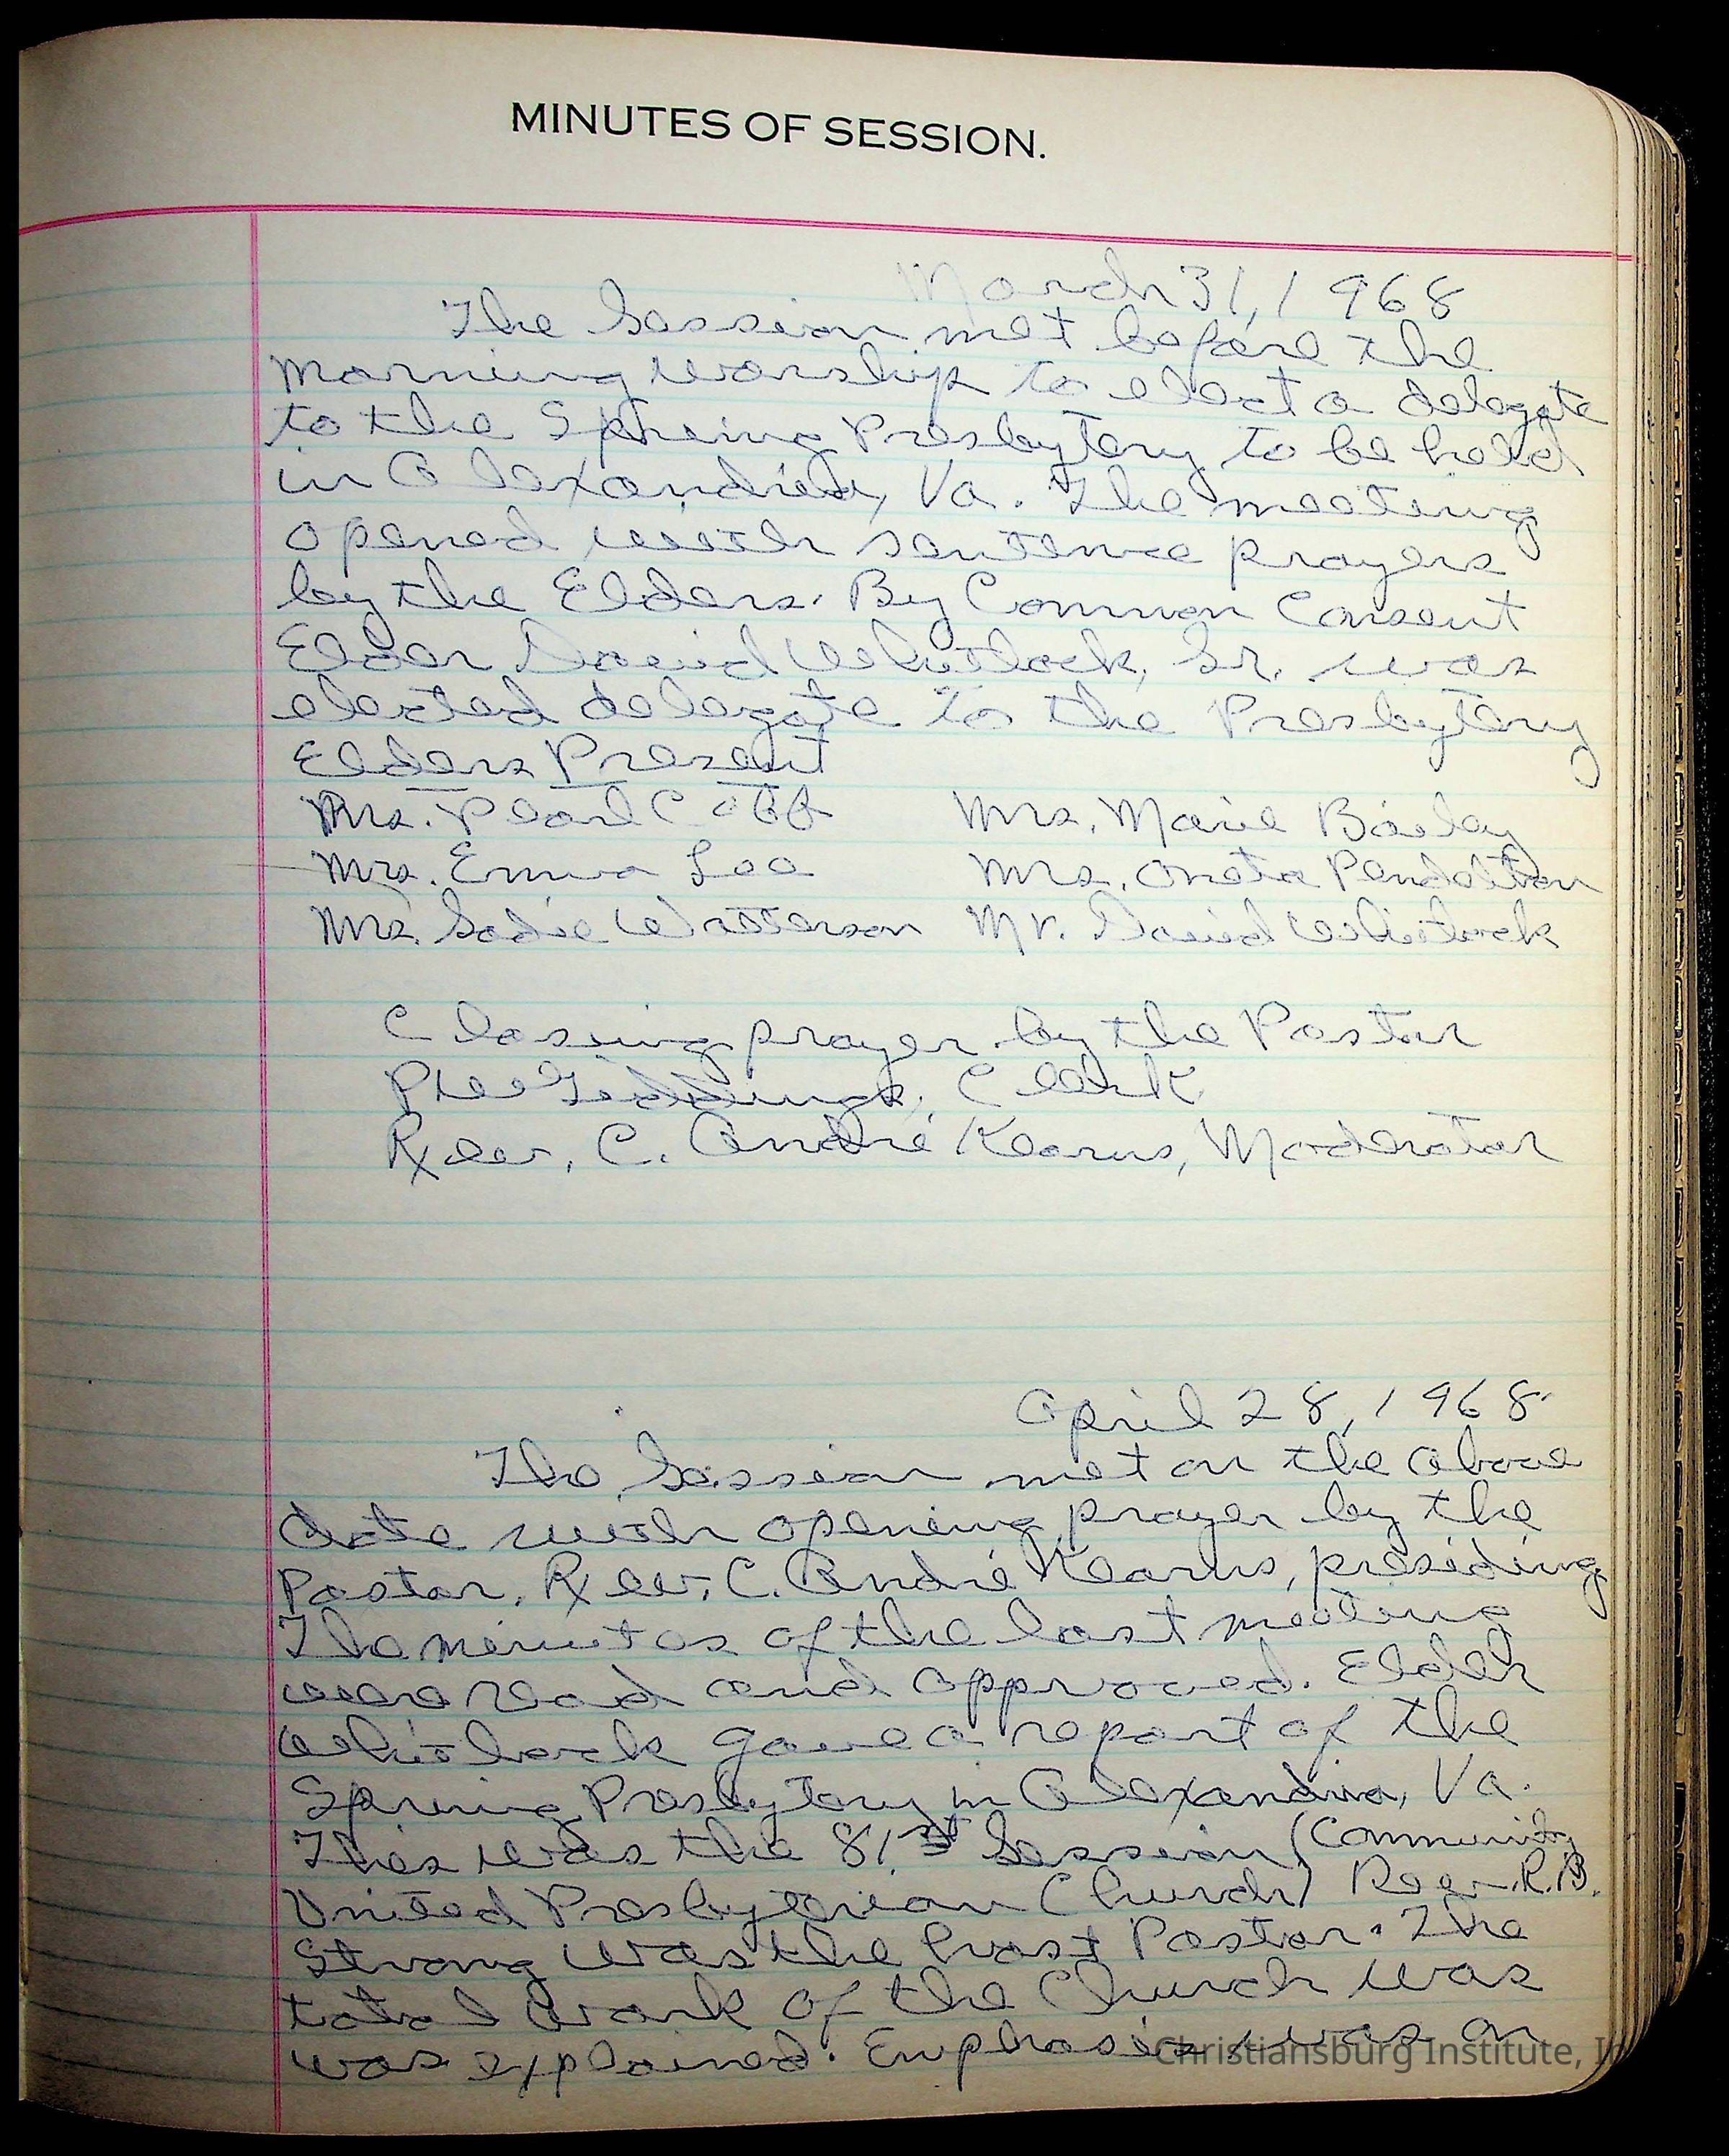 MINUTES OF SESSION.
March 31, 1968
The Session met before the
morning worship to elect a delegate
to the Spring Presbytery to be held
in Alexandria, Va. The meeting
opened with sentence prayers
by the Elders. By Common Consent
Elder David Whitlock, Sr. was
elected delegate to the Presbytery
Elders Present
Mrs. Pearl Cobb Mrs. Marie Bailey
Mrs. Emma Lee Mrs. Oneta Pendelton
Mrs. Sadie Watterson Mr. David Whitlock
Closing prayer by the Pastor
Giddings, Clerk
Rev. C. André Kearns, Moderator
April 28, 1968
The Session met on the above
date with opening prayer by the
Pastor, Rev. C. André Kearns, presiding
The minutes of the last meeting
were read and approved. Elder
Whitlock gave a report of the
Spring Presbytery in Alexandria, Va.
This was the 81st Session (Community
United Presbyterian Church) Rev. R.B.
Strong was the host Pastor. The
total work of the Church was
was explained. Emphasis was on
Christiansburg Institute,